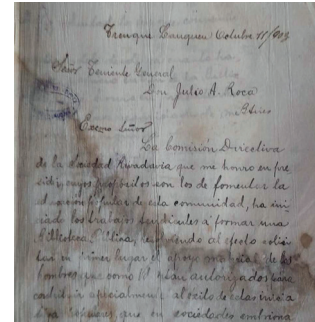 Trenque Lauquen Octubre 11/903
Señor Teniente General
Don Julio A. Roca
Bs Aires
Excmo Señor
La Comisión Directiva
de la Sociedad Rivadavia que me honro en pre
sidir, cuyos propósitos son los de fomentar la
educación popular de esta comunidad, ha ini
ciado los trabajos tendientes á formar una
Biblioteca Pública, resolviendo al efecto solici
tar en primer lugar el apoyo material de los
hombres que como V. autorizados para
contribuir especialmente al éxito de estas inicia
que en sociedades embriona